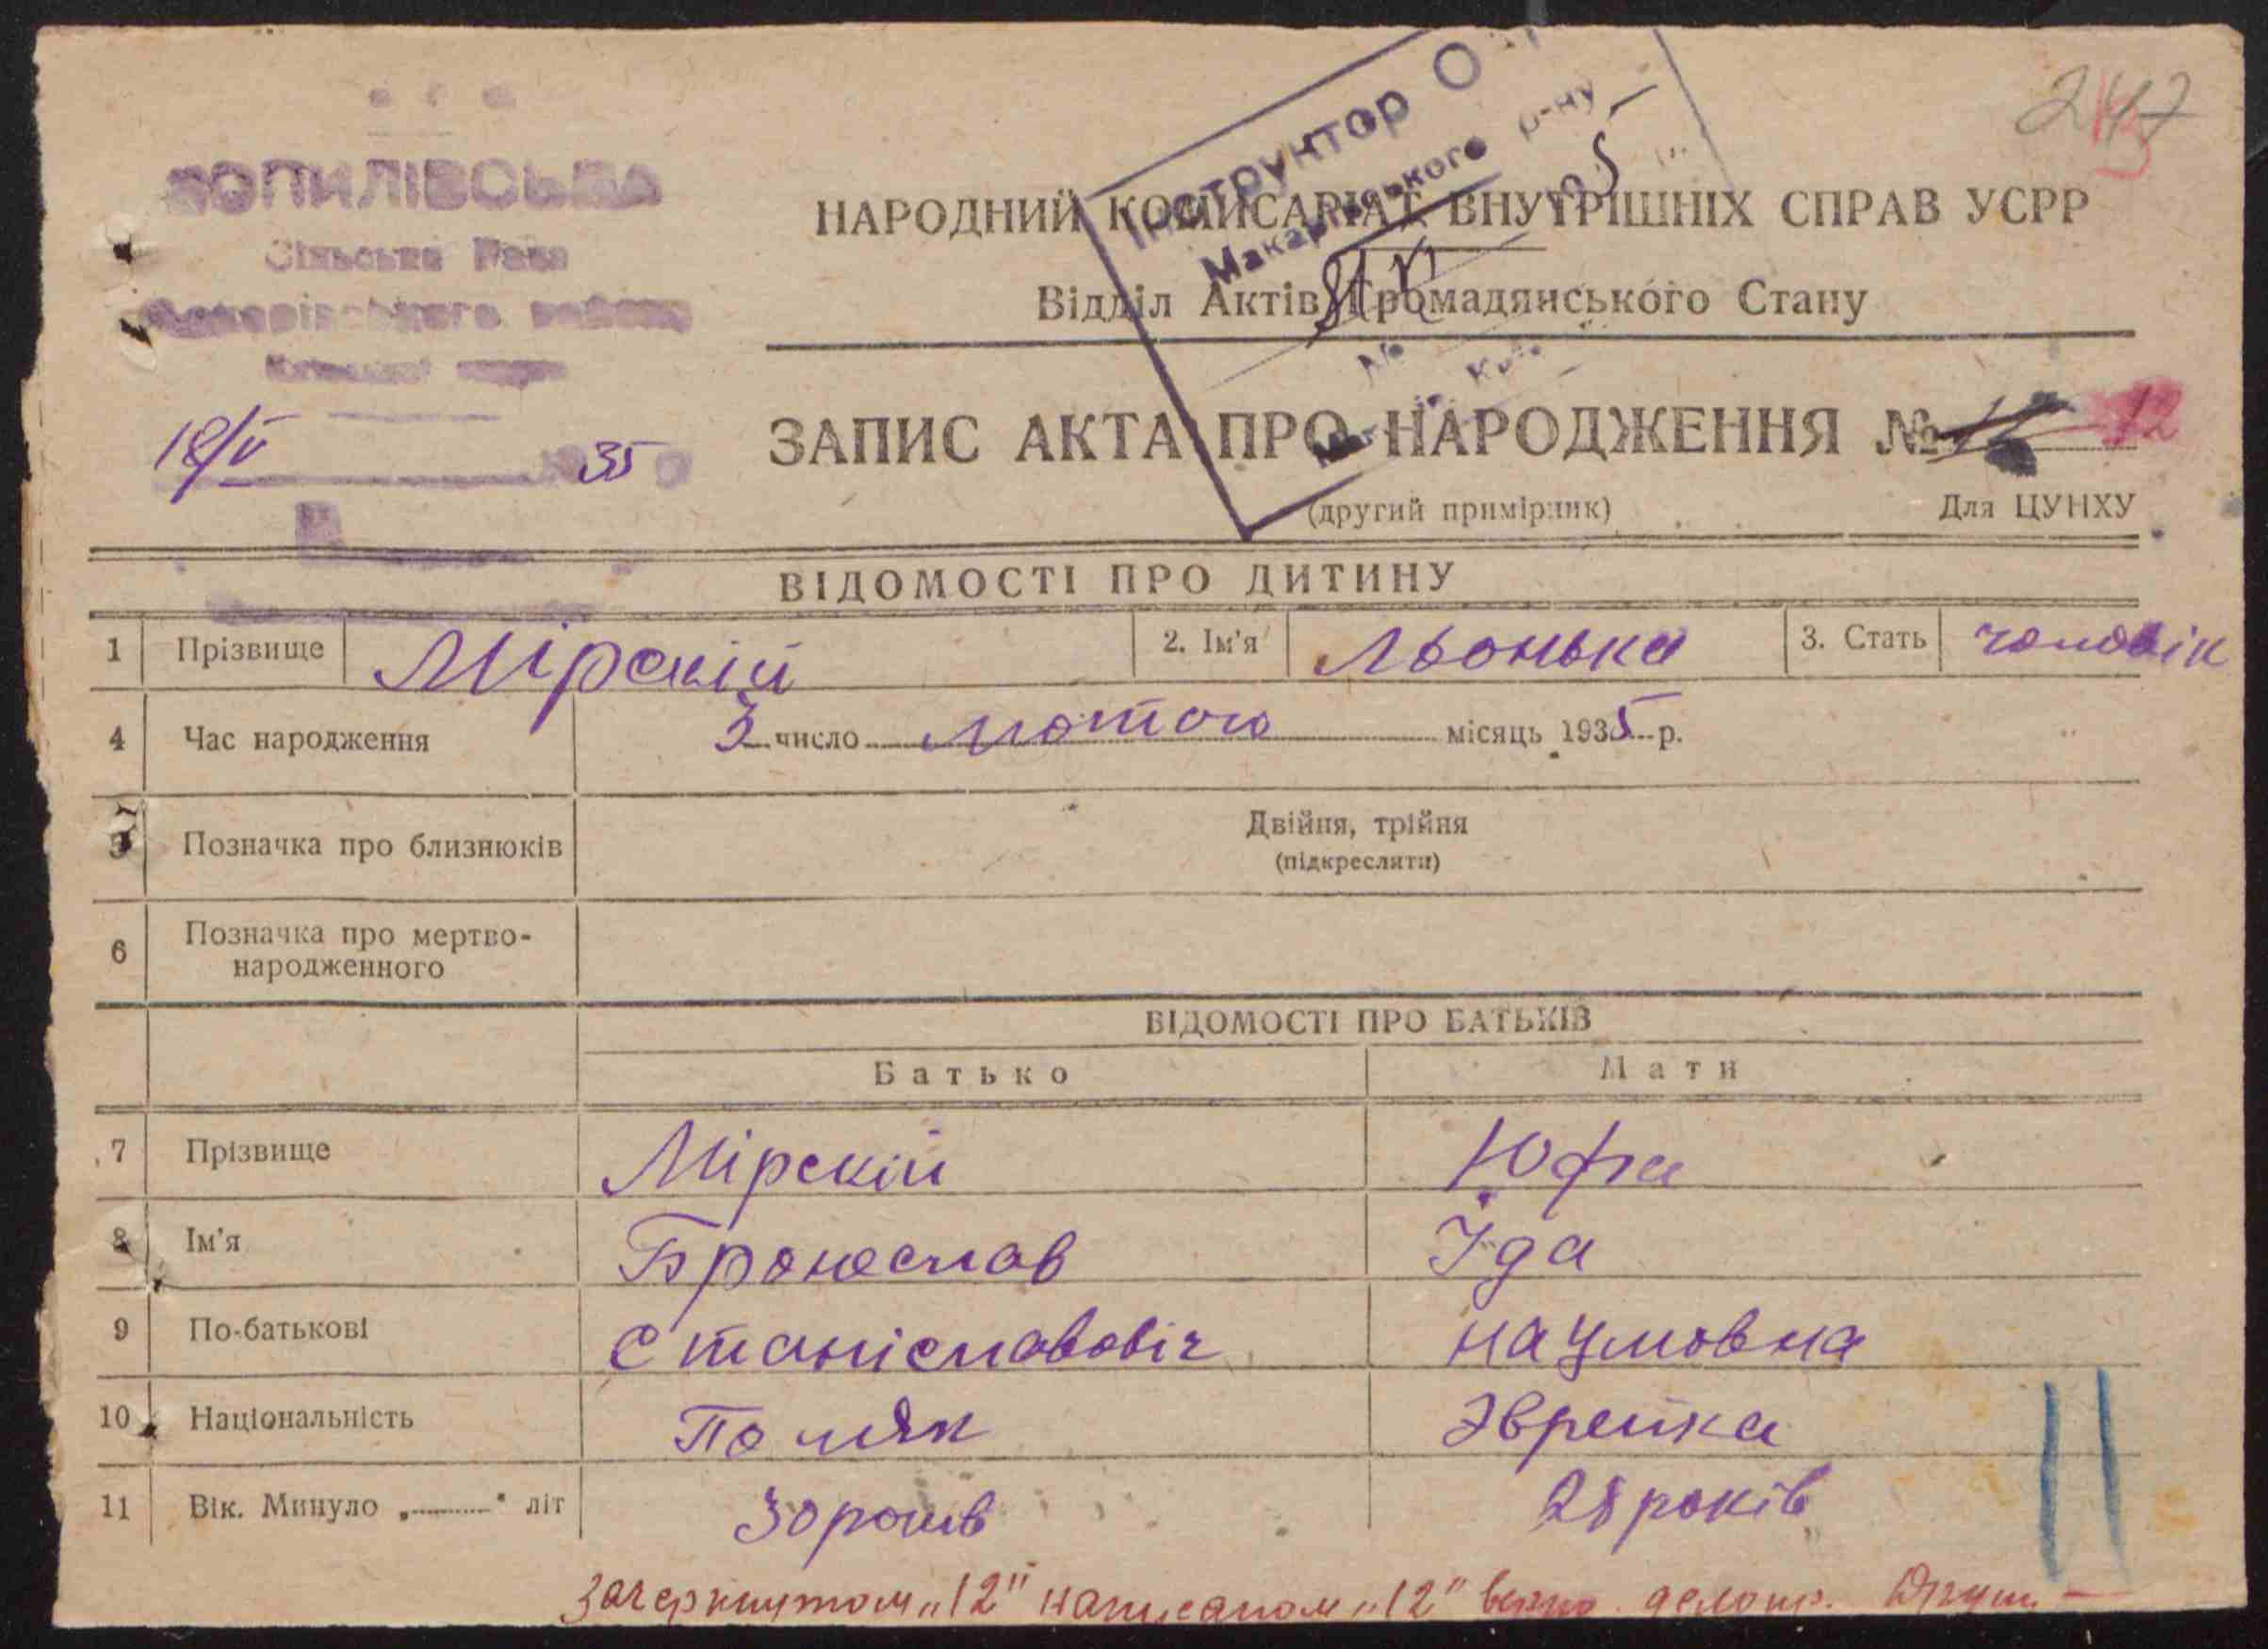 КОПИЛІВСЬКА
Сільська Рада
Макарівського району
Київської
18/V 1935
Інструктор
Макарівського р-ну
№
247
НАРОДНИЙ КОМИСАРІАТ ВНУТРІШНІХ СПРАВ УСРР
Відділ Актів Громадянського Стану
ЗАПИС АКТА ПРО НАРОДЖЕННЯ № 12
(другий примірник) Для ЦУНХУ
ВІДОМОСТІ ПРО ДИТИНУ
1 Прізвище Мірскій 2. Ім'я Льонька 3. Стать чоловік
4 Час народження 3 число лютого місяць 1935 р.
5 Позначка про близнюків Двійня, трійня
(підкреслити)
6 Позначка про мертво-
народженного
ВІДОМОСТІ ПРО БАТЬКІВ
Батько Мати
7 Прізвище Мірскій Юфа
8 Ім'я Бронеслав Їда
9 По-батькові Станіславовіч наумовна
10 Національність Поляк Эврейка
11 Вік. Минуло „ " літ 30 років 28 років
Зачеркнутом „12" написаном „12" верно. делопр.